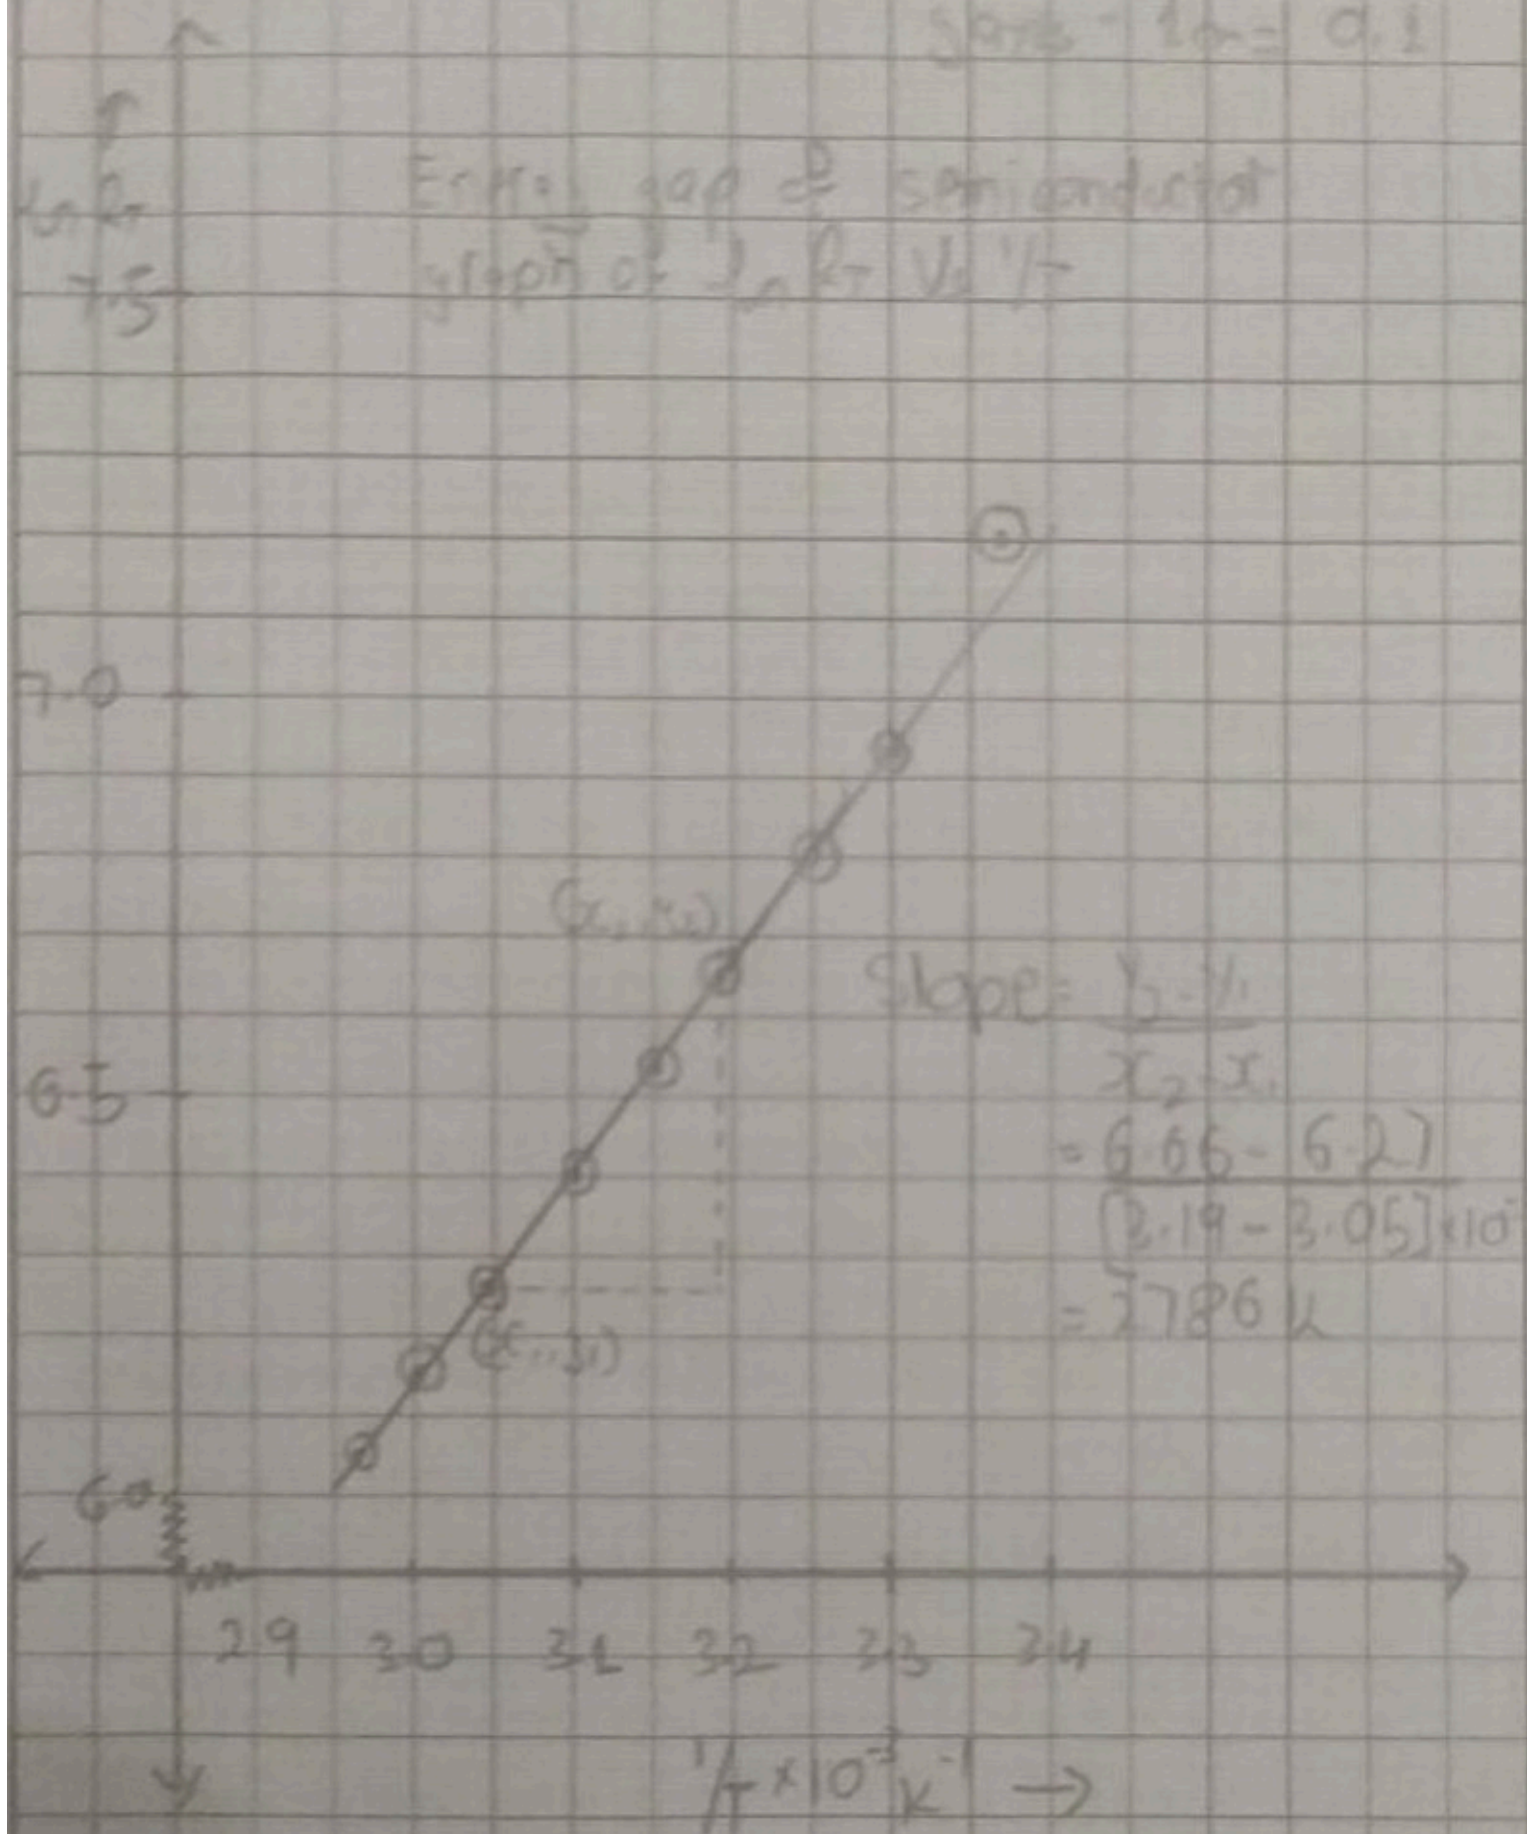 1cm = 0.1
ln RT
Energy gap of semiconductor
graph of ln RT Vs 1/T
7.5
7.0
(x2, y2)
Slope = y2-y1
x2-x1
6.5
= 6.66 - 6.27
[3.19 - 3.05]×10
= 2786 k
(x1, y1)
6.0
2.9 3.0 3.1 3.2 3.3 3.4
1/T ×10⁻³ K⁻¹ →